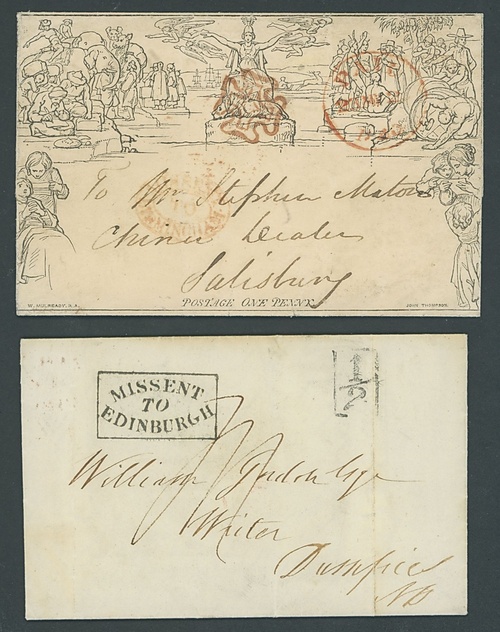 To Mr Stephen
China Dealer
Salisbury
POSTAGE ONE PENNY.
W. MULREADY, R.A.
JOHN THOMPSON.
MISSENT
TO
EDINBURGH
½
William Esqr
Writer
Dumfries
NB